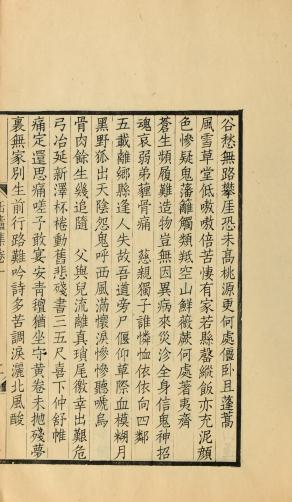 谷愁無路攀崖恐未高桃源更何處偃臥且蓬蒿
風雪草堂低嗷嗷倍苦悽有家若縣罄縱飯亦充泥顏
色慘疑鬼藩籬觸類羝空山鮮薇蕨何處著夷齊
蒼生頻履難造物豈無因異病來災診全身信鬼神招
魂哀弱弟纏骨痛 慈親獨子誰憐恤依依向四鄰
五載離鄉縣逢人失故吾道旁尸偃仰草際血模糊月
黑野狐出天陰怨鬼呼西風滿懷淚慘慘聽嗁烏
骨肉餘生幾追隨 父與兒流離真瑣尾徼幸出艱危
弓冶延新澤杯棬動舊悲殘書三五尺喜下仲舒帷
痛定還思痛嗟予敢宴安青氊猶坐守黃卷未拋殘夢
裏無家別生前行路難吟詩多苦調淚灑北風酸